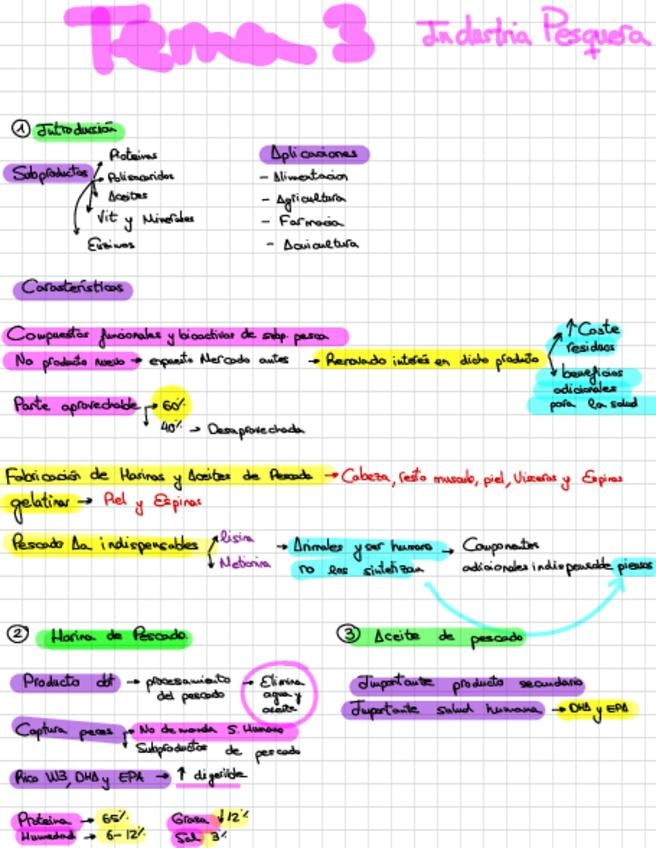 Tema 3 Industria Pesquera
① Introducción
Subproductos
Proteinas
Polisacaridos
Aceites
Vit y Minerales
Enzimas
Aplicaciones
- Alimentacion
- Agricultura
- Farmacia
- Acuicultura
Características
Compuestos funcionales y bioactivos de subp. pesca
No producto nuevo → expuesto Mercado antes → Renovado interés en dicho producto
↑ Coste
residuos
beneficios
adicionales
para la salud
Parte aprovechable → 60%
40% → Desaprovechada
Fabricación de Harinas y Aceites de Pescado → Cabeza, resto musculo, piel, Visceras y Espinas
gelatinas → Piel y Espinas
Pescado Aa indispensables
lisina
Metionina
→ Animales y ser humano
no las sintetizan
→ Componentes
adicionales indispensable piensos
② Harina de Pescado
Producto obt → procesamiento
del pescado
→ Elimina
agua y
aceite
Captura peces
No demanda S. Humano
Subproductos de pescado
Rico W3, DHA y EPA → ↑ digerible
Proteina → 65%
Humedad → 6-12%
Grasa ↓ 12%
Sal 3%
③ Aceite de pescado
Importante producto secundario
Importante salud humana → DHA y EPA